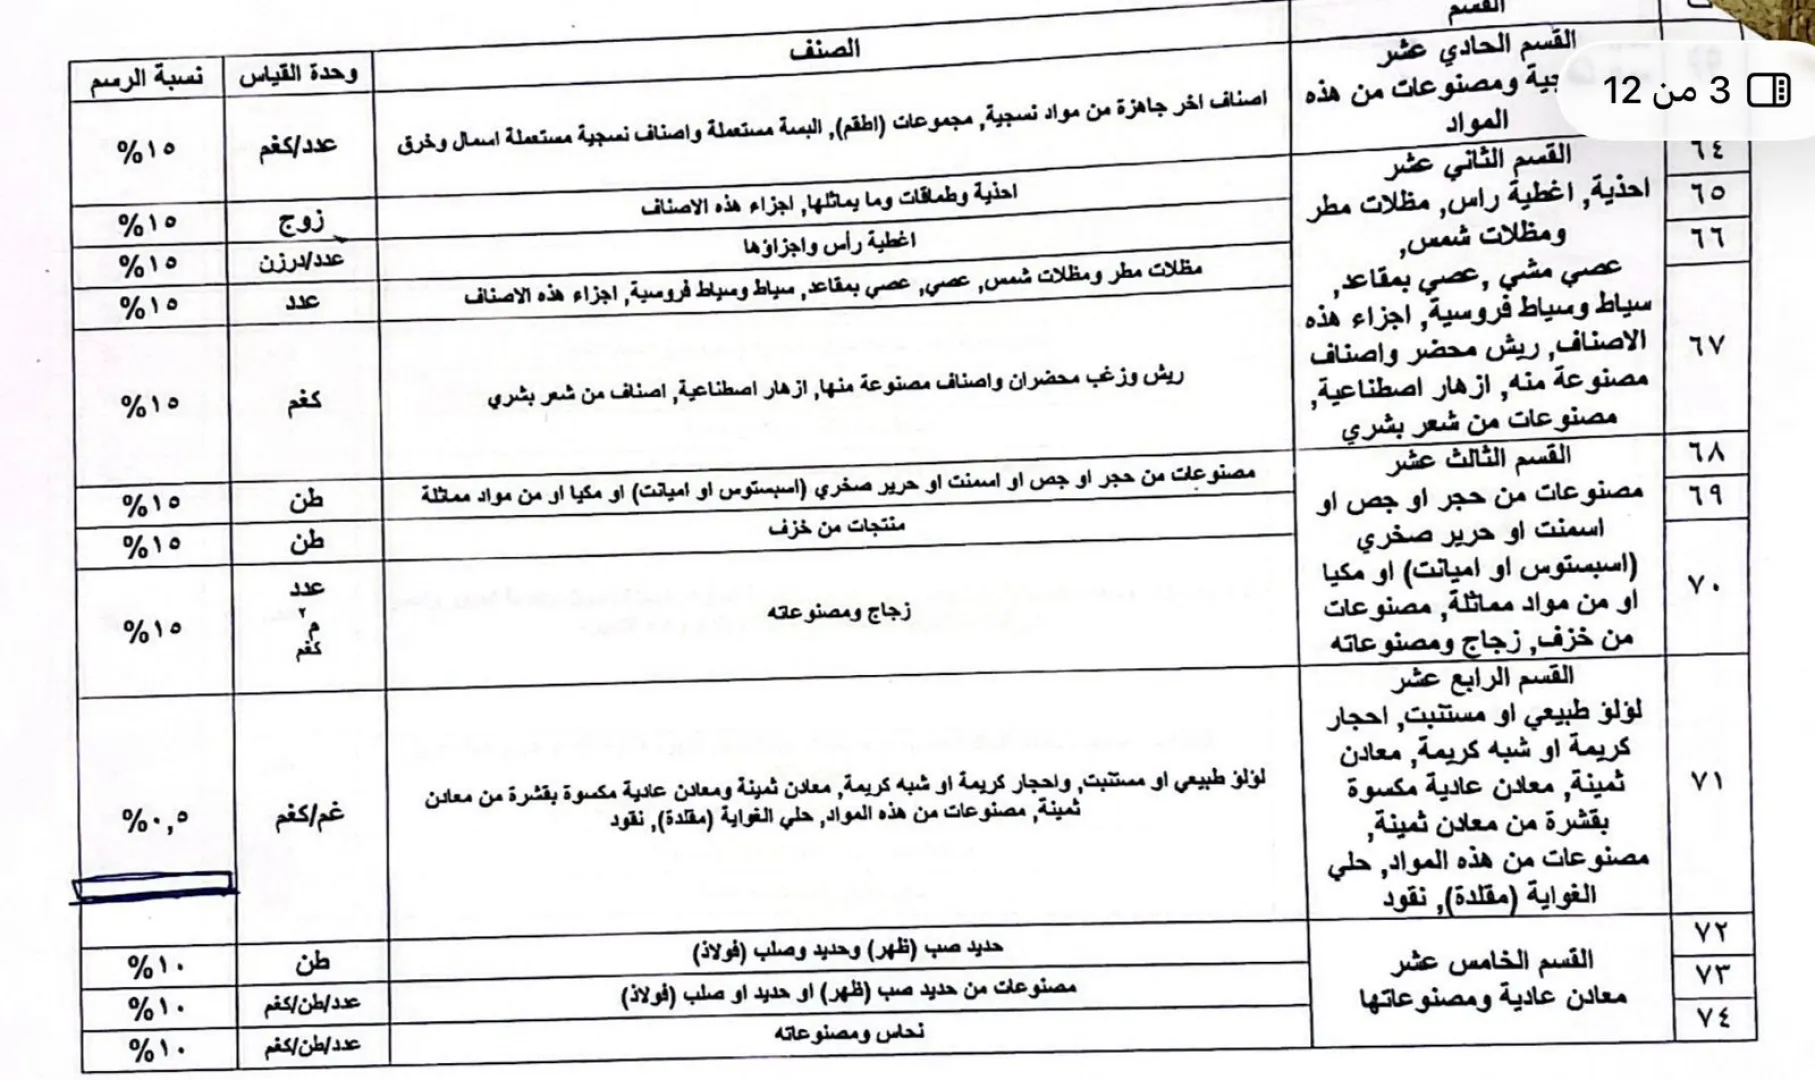 3 من 12
القسم
الصنف
وحدة القياس
نسبة الرسم
القسم الحادي عشر
ومصنوعات من هذه
المواد
اصناف اخر جاهزة من مواد نسجية, مجموعات (اطقم), البسة مستعملة واصناف نسجية مستعملة اسمال وخرق
عدد/كغم
%١٥
٦٤
القسم الثاني عشر
احذية, اغطية راس, مظلات مطر
ومظلات شمس,
عصي مشي ,عصي بمقاعد,
سياط وسياط فروسية, اجزاء هذه
الاصناف, ريش محضر واصناف
مصنوعة منه, ازهار اصطناعية,
مصنوعات من شعر بشري
احذية وطماقات وما يماثلها, اجزاء هذه الاصناف
زوج
%١٥
٦٥
اغطية رأس واجزاؤها
عدد/درزن
%١٥
٦٦
مظلات مطر ومظلات شمس, عصي, عصي بمقاعد, سياط وسياط فروسية, اجزاء هذه الاصناف
عدد
%١٥
٦٧
ريش وزغب محضران واصناف مصنوعة منها, ازهار اصطناعية, اصناف من شعر بشري
كغم
%١٥
٦٨
القسم الثالث عشر
مصنوعات من حجر او جص او
اسمنت او حرير صخري
(اسبستوس او اميانت) او مكيا
او من مواد مماثلة, مصنوعات
من خزف, زجاج ومصنوعاته
مصنوعات من حجر او جص او اسمنت او حرير صخري (اسبستوس او اميانت) او مكيا او من مواد مماثلة
طن
%١٥
٦٩
منتجات من خزف
طن
%١٥
٧٠
زجاج ومصنوعاته
عدد
م٢
كغم
%١٥
٧١
القسم الرابع عشر
لؤلؤ طبيعي او مستنبت, احجار
كريمة او شبه كريمة, معادن
ثمينة, معادن عادية مكسوة
بقشرة من معادن ثمينة,
مصنوعات من هذه المواد, حلي
الغواية (مقلدة), نقود
لؤلؤ طبيعي او مستنبت, واحجار كريمة او شبه كريمة, معادن ثمينة ومعادن عادية مكسوة بقشرة من معادن
ثمينة, مصنوعات من هذه المواد, حلي الغواية (مقلدة), نقود
غم/كغم
%٠,٥
٧٢
القسم الخامس عشر
معادن عادية ومصنوعاتها
حديد صب (ظهر) وحديد وصلب (فولاذ)
طن
%١٠
٧٣
مصنوعات من حديد صب (ظهر) او حديد او صلب (فولاذ)
عدد/طن/كغم
%١٠
٧٤
نحاس ومصنوعاته
عدد/طن/كغم
%١٠